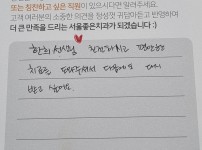 또는 칭찬하고 싶은 직원이 있으시다면 알려주세요.
고객 여러분의 소중한 의견을 항상 귀담아듣고 반영하여
더 큰 만족을 드리는 서울좋은치과가 되겠습니다 :)
선생님 친절하시고 편안한
치료를 해주셔서 다음에도 다시
받고 싶어요.